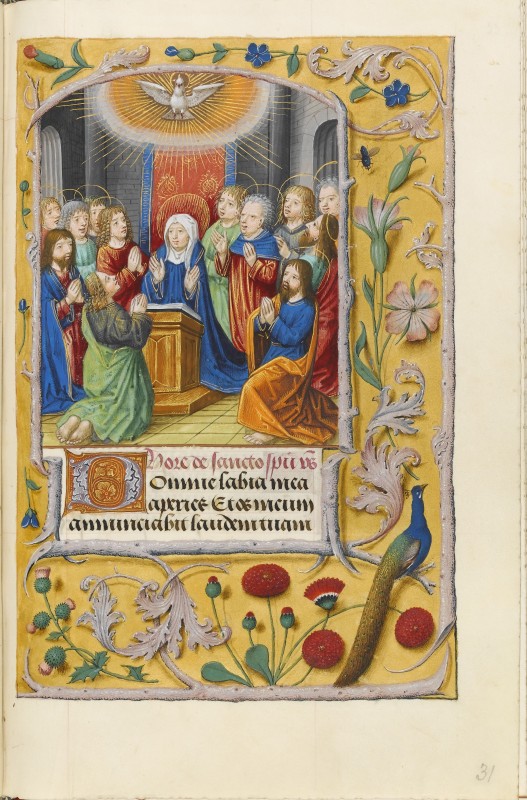 Hore de sancto spũ vs
Domine labia mea
aperies Et os meum
annunciabit laudem tuam
31